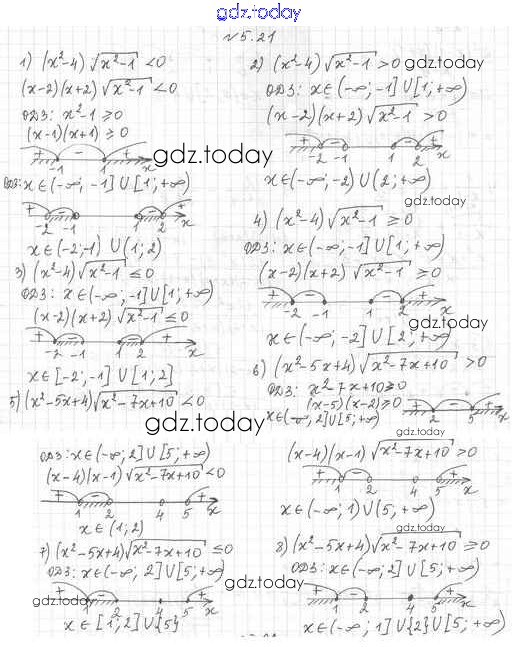 gdz.today
№5.21
1) (x²-4)√x²-1 < 0
(x-2)(x+2)√x²-1 < 0
ОДЗ: x²-1 ⩾ 0
(x-1)(x+1) ⩾ 0
+ - + -1 1 x
gdz.today
ОДЗ: x∈(-∞; -1]∪[1; +∞)
+ - - + -2 -1 1 2 x
x∈(-2;-1) ∪ (1; 2)
3) (x²-4)√x²-1 ⩽ 0
ОДЗ: x∈(-∞;-1]∪[1; +∞)
(x-2)(x+2)√x²-1 ⩽ 0
+ - - + -2 -1 1 2 x
x∈[-2;-1]∪[1; 2]
5) (x²-5x+4)√x²-7x+10 < 0
gdz.today
2) (x²-4)√x²-1 > 0
gdz.today
ОДЗ: x∈(-∞; -1]∪[1; +∞)
(x-2)(x+2)√x²-1 > 0
+ - - + -2 -1 1 2 x
x∈(-∞; -2)∪(2; +∞)
gdz.today
4) (x²-4)√x²-1 ⩾ 0
ОДЗ: x∈(-∞; -1]∪[1; +∞)
(x-2)(x+2)√x²-1 ⩾ 0
+ - - + -2 -1 1 2 x
gdz.today
x∈(-∞; -2]∪[2; +∞)
6) (x²-5x+4)√x²-7x+10 > 0
ОДЗ: x²-7x+10 ⩾ 0
(x-5)(x-2) ⩾ 0
x∈(-∞; 2]∪[5; +∞)
+ - + 2 5 x
gdz.today
ОДЗ: x∈(-∞; 2]∪[5; +∞)
(x-4)(x-1)√x²-7x+10 < 0
+ - + 1 2 4 5 x
x∈(1; 2)
7) (x²-5x+4)√x²-7x+10 ⩽ 0
ОДЗ: x∈(-∞; 2]∪[5; +∞)
gdz.today
+ - + 1 2 4 5 x
gdz.today
x∈[1; 2]∪{5}
(x-4)(x-1)√x²-7x+10 > 0
+ - + 1 2 4 5 x
x∈(-∞; 1)∪(5; +∞)
gdz.today
8) (x²-5x+4)√x²-7x+10 ⩾ 0
ОДЗ: x∈(-∞; 2]∪[5; +∞)
+ - + 1 2 4 5 x
gdz.today
x∈(-∞; 1]∪{2}∪[5; +∞)